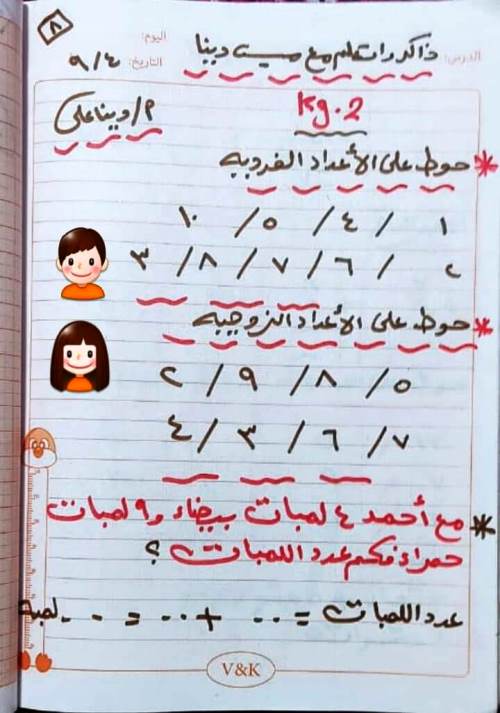 ٨
الدرس: ذاكر واتعلم مع ميس دينا
اليوم:
التاريخ: ٩/٤
Kg.2
م/دينا على
* حوط على الأعداد الفردية
١ / ٤ / ٥ / ١٠
٢ / ٦ / ٧ / ٨ / ٣
* حوط على الأعداد الزوجية
٥ / ٨ / ٩ / ٢
٧ / ٦ / ٣ / ٤
* مع أحمد ٤ لمبات بيضاء و ٩ لمبات
حمراء فكم عدد اللمبات ؟
عدد اللمبات = .. + .. = .. لمبة
V&K